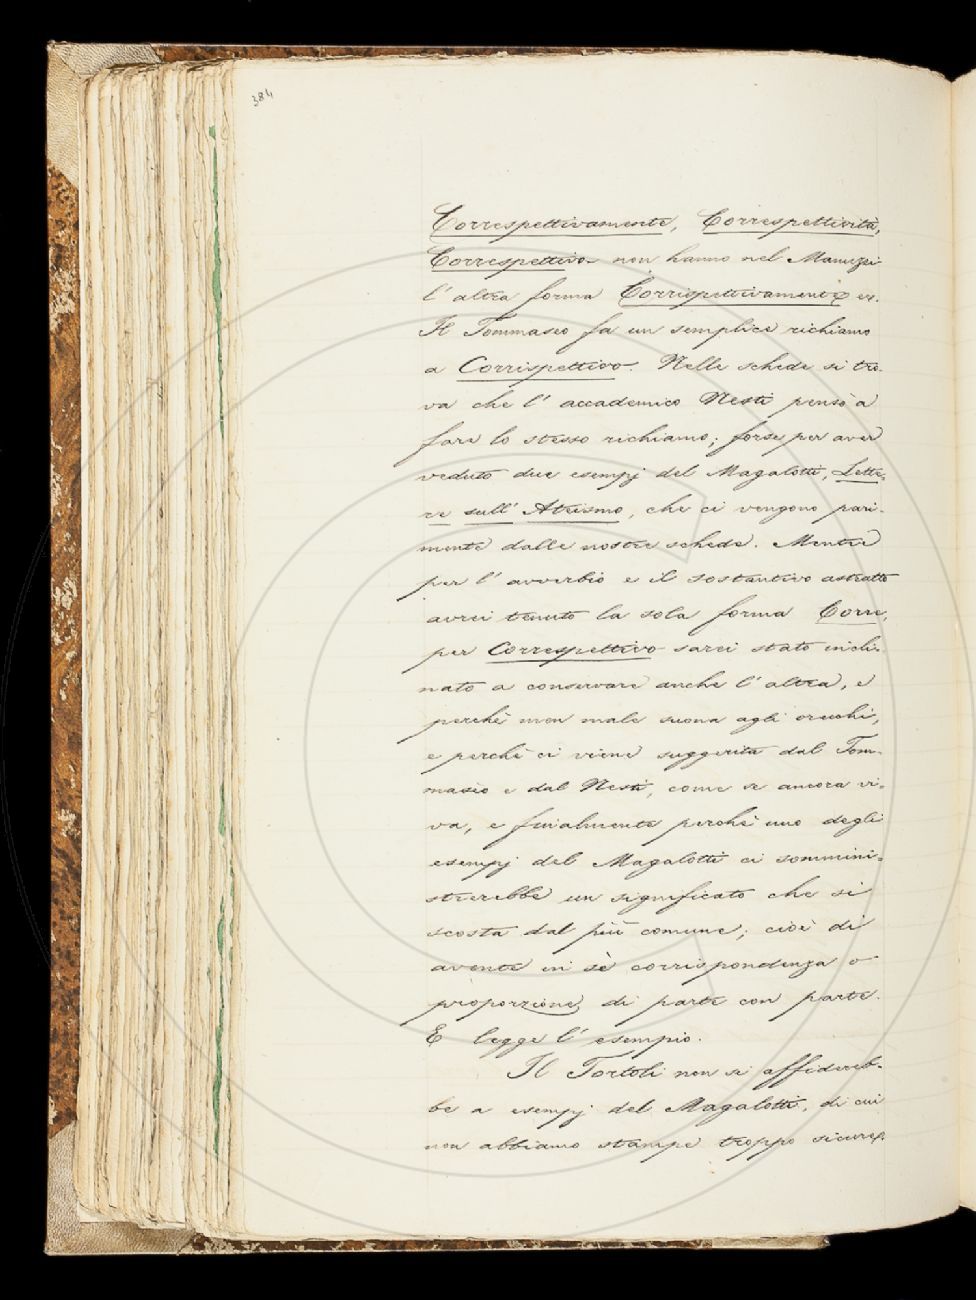 384
Correspettivamente, Correspettività,
Correspettivo non hanno nel Manuzzi
l' altra forma Corrispettivamente ec.
Il Tommaseo fa un semplice richiamo
a Corrispettivo. Nelle schede si tro-
va che l' accademico Nesti pensò a
fare lo stesso richiamo; forse per aver
veduto due esempj del Magalotti, Lette-
re sull' Ateismo, che ci vengono pari-
mente dalle nostre schede. Mentre
per l' avverbio e il sostantivo astratto
avrei tenuto la sola forma Corre,
per Correspettivo sarei stato incli-
nato a conservare anche l' altra, e
perchè men male suona agli orecchi,
e perchè ci viene suggerita dal Tom-
maseo e dal Nesti, come se ancora vi-
va, e finalmente perchè uno degli
esempj del Magalotti ci sommini-
strerebbe un significato che si
scosta dal più comune; cioè di
avente in sè corrispondenza o
proporzione di parte con parte.
E legge l' esempio.
Il Tortoli non si affidereb-
be a esempj del Magalotti, di cui
non abbiamo stampe troppo sicure,